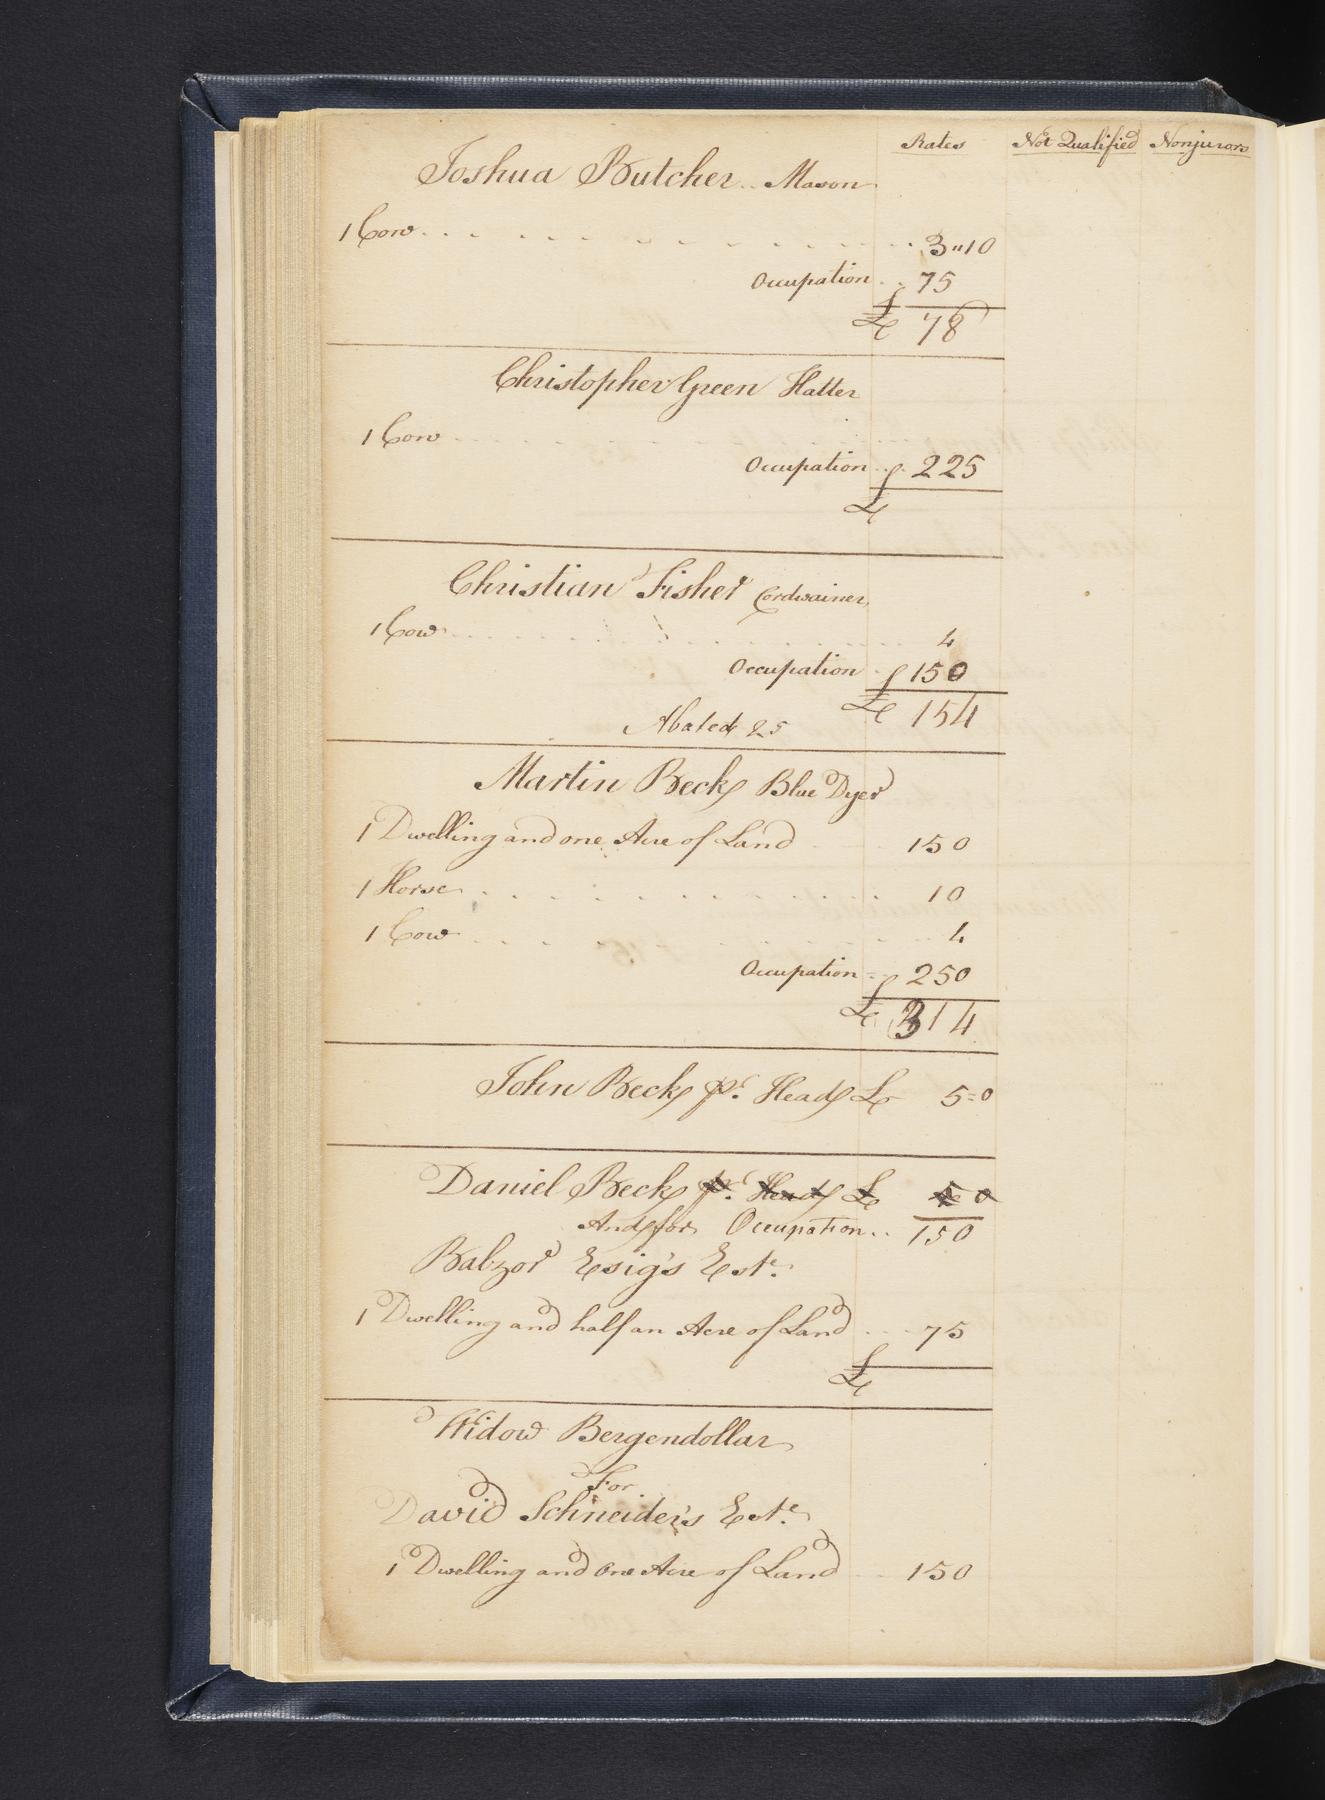 Rates Not Qualified Nonjurors
Joshua Butcher .. Mason
1 Cow . . . . . . . . . . 3"10
Occupation . . 75
£ 78
Christopher Green Hatter
1 Cow . . . . . . . . . .
Occupation . . 225
£
Christian Fisher Cordwainer
1 Cow . . . . . . . . . . 4
Occupation . 150
£ 154
Abated 25
Martin Beck Blue Dyer
1 Dwelling and one Acre of Land 150
1 Horse . . . . . . . . . . 10
1 Cow . . . . . . . . . . 4
Occupation 250
£ 314
John Beck pr. Head £ 5=0
Daniel Beck pr. Head £ 5 0
And for Occupation .. 150
Balzor Esig's Este.
1 Dwelling and half an Acre of Land 75
£
Widow Bergendollar
For
David Schneider's Este.
1 Dwelling and One Acre of Land 150